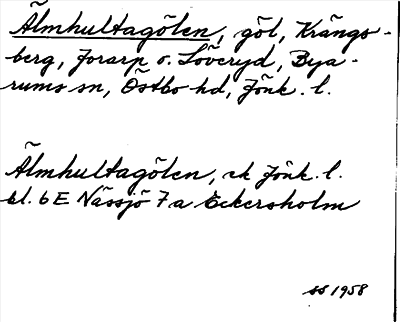 Älmhultagölen, göl, Krängs-
berg, Forarp o. Löveryd, Bya-
rums sn, Östbo hd, Jönk. l.
Älmhultagölen, ek Jönk. l.
bl. 6E Nässjö 7a Eckersholm
SS 1958